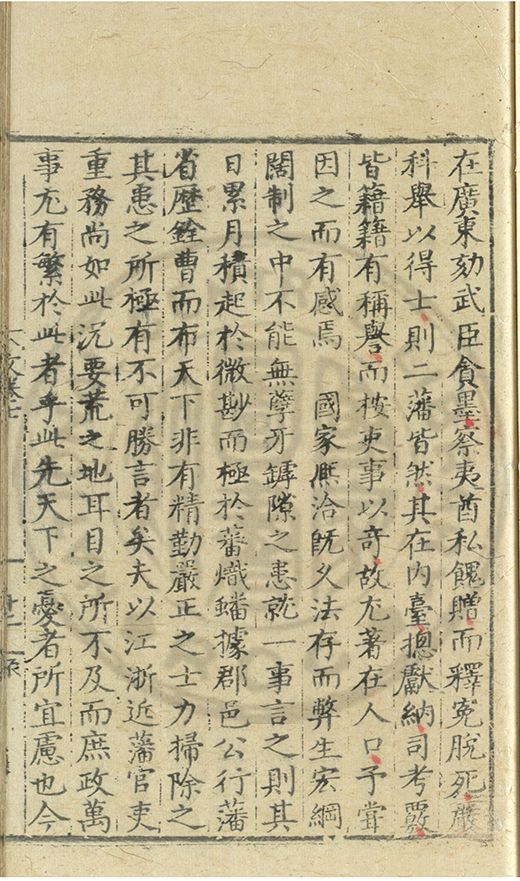 在廣東劾武臣貪墨察夷酋私餽贈而釋冤脫死嚴
科舉以得士則二藩皆然其在內臺摠獻納司考覈
皆籍籍有稱譽而桉吏事以奇故尤著在人口予嘗
因之而有感焉　國家熈洽既久法存而弊生宏綱
闊制之中不能無孽牙罅隙之患就一事言之則其
日累月積起於微尠而極於蕃熾蟠據郡邑公行藩
省歷銓曹而布天下非有精勤嚴正之士力掃除之
其患之所極有不可勝言者矣夫以江浙近藩官吏
重務尚如此况要荒之地耳目之所不及而庶政萬
事尤有繁於此者乎此先天下之憂者所宜慮也今